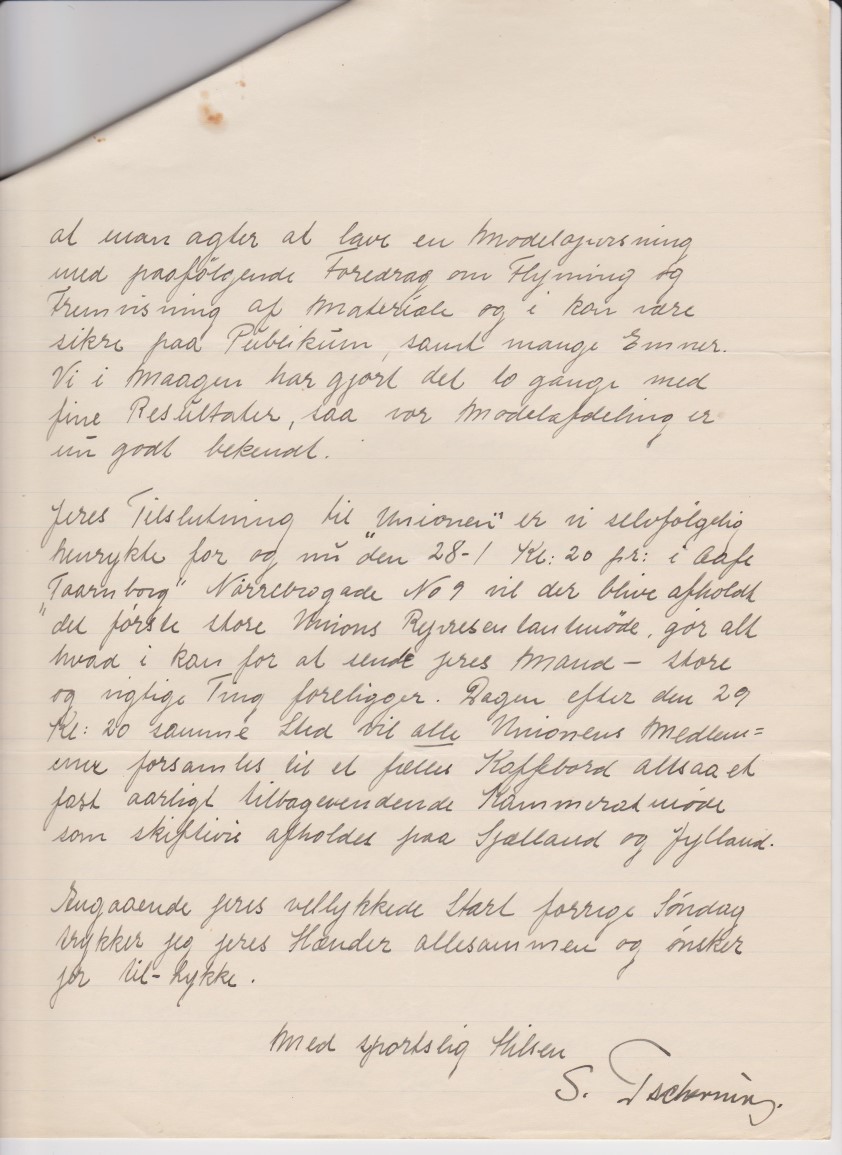 at man agter at lave en Modelopvisning
med paafölgende Foredrag om Flyvning og
Fremvisning af Materiale og i kan være
sikre paa Publikum, samt mange Emner.
Vi i Maagen har gjort det to gange med
fine Resultater, saa vor Modelafdeling er
nu godt bekendt.
Jeres Tilslutning til "Unionen" er vi selvfölgelig
henrykte for og nu "den 28-1 Kl: 20 pr: i Cafe
Taarnborg" Nörrebrogade No 9 vil der blive afholdt
"det förste store Unions Repræsentantmöde, gör alt
hvad i kan for at sende jeres Mand - store
og vigtige Ting foreligger. Dagen efter den 29
Kl: 20 samme Sted vil alle Unionens Medlem=
mer forsamles til et fælles Kaffebord altsaa et
fast aarligt tilbagevendende Kammeratmöde
som skiftivis afholdes paa Sjælland og Jylland.
Angaaende jeres vellykkede Start forrige Söndag
trykker jeg jeres Hænder allesammen og önsker
jer til-Lykke.
Med sportslig Hilsen
S. Tscherning.